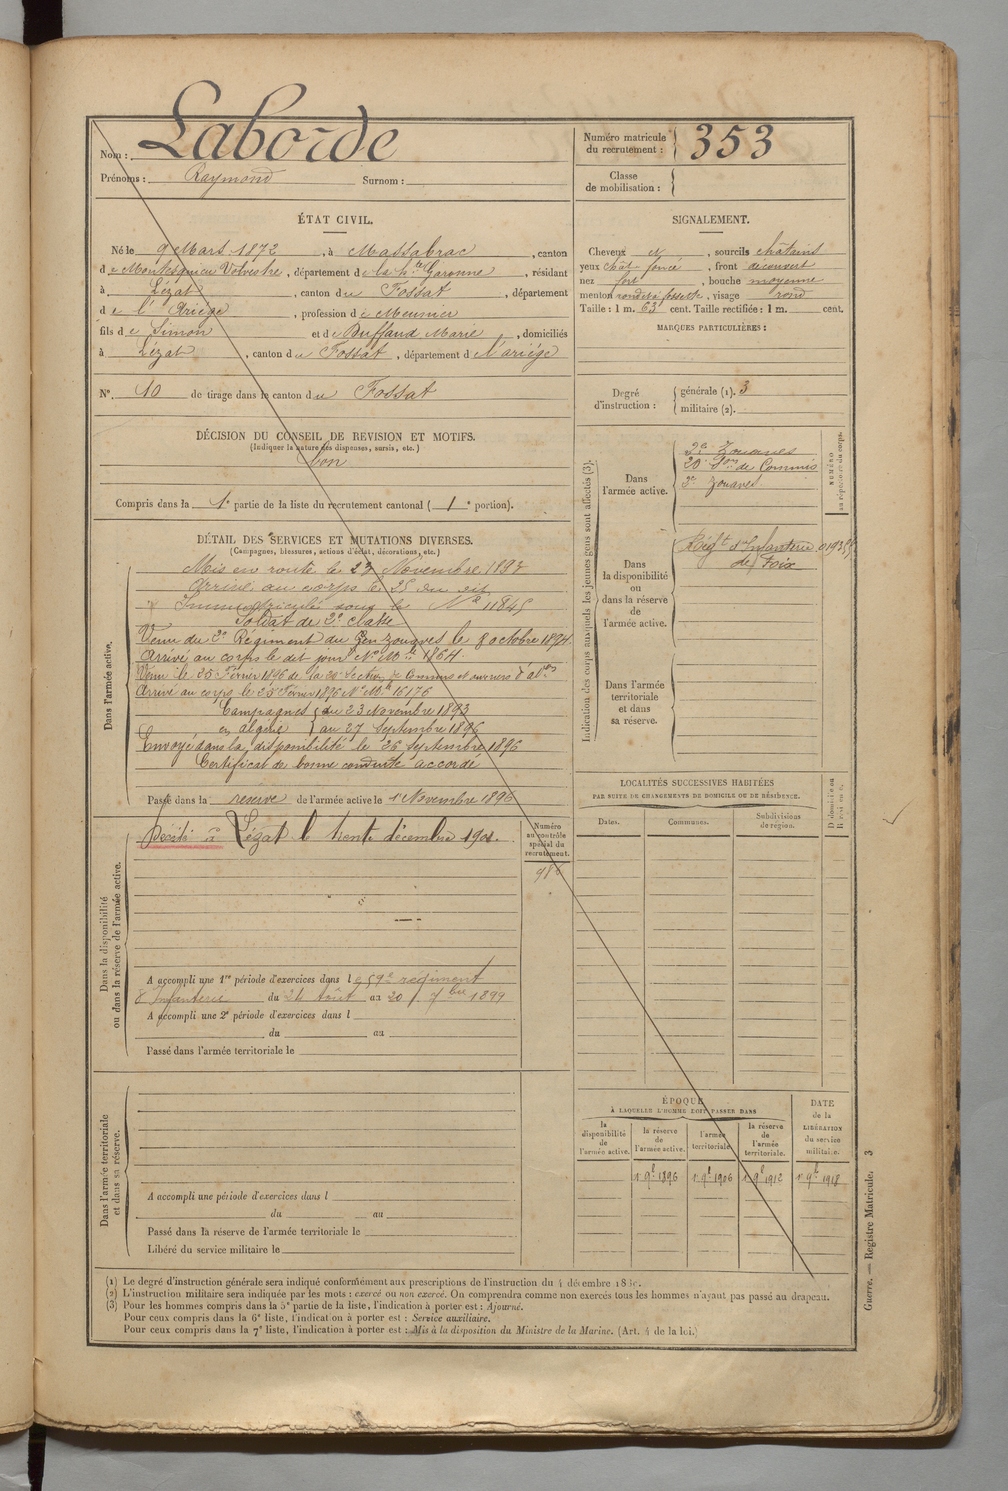 Nom : Laborde
Prénoms : Raymond Surnom :
Numéro matricule du recrutement : 353
Classe de mobilisation :
ÉTAT CIVIL.
Né le 9 Mars 1872, à Massabrac, canton
de Montesquieu Volvestre, département de la hte Garonne, résidant
à Lézat, canton du Fossat, département
de l'Ariège, profession de Meunier
fils de Simon et de Buffaud Marie, domiciliés
à Lézat, canton du Fossat, département de l'ariége
N° 10 de tirage dans le canton du Fossat
DÉCISION DU CONSEIL DE REVISION ET MOTIFS.
(Indiquer la nature des dispenses, sursis, etc.)
bon
Compris dans la 1e partie de la liste du recrutement cantonal (1e portion).
DÉTAIL DES SERVICES ET MUTATIONS DIVERSES.
(Campagnes, blessures, actions d'éclat, décorations, etc.)
Dans l'armée active.
Mis en route le 23 Novembre 1893
Arrivé au corps le 25 du dit
Immatriculé sous le No 11845
Soldat de 2e classe
Venu du 2e Régiment de Zouaves le 8 octobre 1894.
Arrivé au corps le dit jour No Mle 1864.
Venu le 25 Février 1896 de la 20e Section de Commis et ouvriers d'adon
Arrivé au corps le 25 Février 1896 No Mle 16176
Campagnes du 23 Novembre 1893
en algérie au 27 Septembre 1896
Envoyé dans la disponibilité le 26 septembre 1896
Certificat de bonne conduite accordé
Passé dans la réserve de l'armée active le 1er Novembre 1896
Dans la disponibilité
ou dans la réserve de l'armée active.
Décédé à Lézat le trente décembre 1901.
Numéro
au contrôle
spécial du
recrutement.
A accompli une 1re période d'exercices dans le 59e régiment
d'Infanterie du 24 Août au 20 7bre 1899
A accompli une 2e période d'exercices dans l
du au
Passé dans l'armée territoriale le
Dans l'armée territoriale
et dans sa réserve.
A accompli une période d'exercices dans l
du au
Passé dans la réserve de l'armée territoriale le
Libéré du service militaire le
SIGNALEMENT.
Cheveux et, sourcils châtains
yeux chât. foncé, front découvert
nez fort, bouche moyenne
menton rond à fossette, visage rond
Taille : 1 m. 63 cent. Taille rectifiée : 1 m. cent.
MARQUES PARTICULIÈRES :
Degré d'instruction : générale (1). 3
militaire (2).
Indication des corps auxquels les jeunes gens sont affectés (3).
NUMÉRO
au répertoire du corps.
Dans
l'armée active.
2e Zouaves
20e Son de Commis
3e Zouaves
Dans
la disponibilité
ou
dans la réserve
de
l'armée active.
Régt d'Infanterie
de Foix
Dans l'armée
territoriale
et dans
sa réserve.
LOCALITÉS SUCCESSIVES HABITÉES
PAR SUITE DE CHANGEMENTS DE DOMICILE OU DE RÉSIDENCE.
Dates. Communes. Subdivisions de région. D domicile ou R résidence.
ÉPOQUE
À LAQUELLE L'HOMME DOIT PASSER DANS
la disponibilité de l'armée active.
la réserve de l'armée active.
l'armée territoriale.
la réserve de l'armée territoriale.
DATE de la LIBÉRATION du service militaire.
1r 9bre 1896 1r 9bre 1906 1r 9bre 1912 1r 9bre 1918
(1) Le degré d'instruction générale sera indiqué conformément aux prescriptions de l'instruction du 4 décembre
(2) L'instruction militaire sera indiquée par les mots : exercé ou non exercé. On comprendra comme non exercés tous les hommes n'ayant pas passé au drapeau.
(3) Pour les hommes compris dans la 5e partie de la liste, l'indication à porter est : Ajourné.
Pour ceux compris dans la 6e liste, l'indication à porter est : Service auxiliaire.
Pour ceux compris dans la 7e liste, l'indication à porter est : Mis à la disposition du Ministre de la Marine. (Art. 4 de la loi.)
Guerre. — Registre Matricule. 3